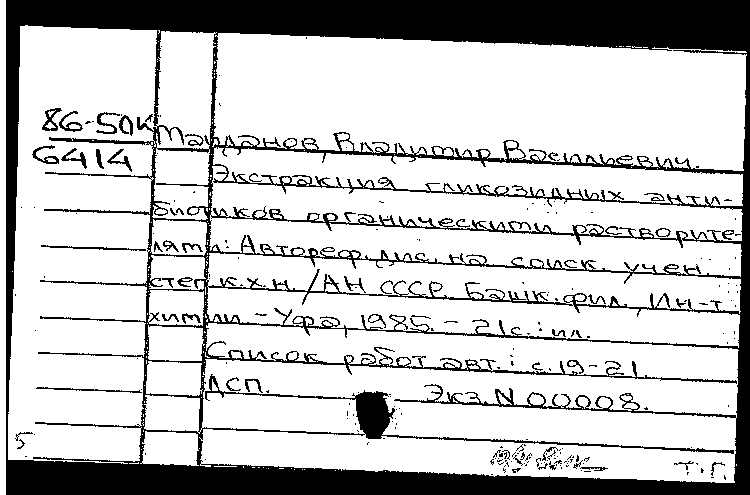 86-50к Майданов, Владимир Васильевич.
6414
Экстракция гликозидных анти-
биотиков органическими растворите-
лями: Автореф. дис. на соиск. учен.
степ. к.х.н. /АН СССР. Башк. фил., Ин-т
химии. - Уфа, 1985. - 21с.: ил.
Список работ авт.: с. 19-21.
ДСП. Экз. N 00008.
5
Т.Г.